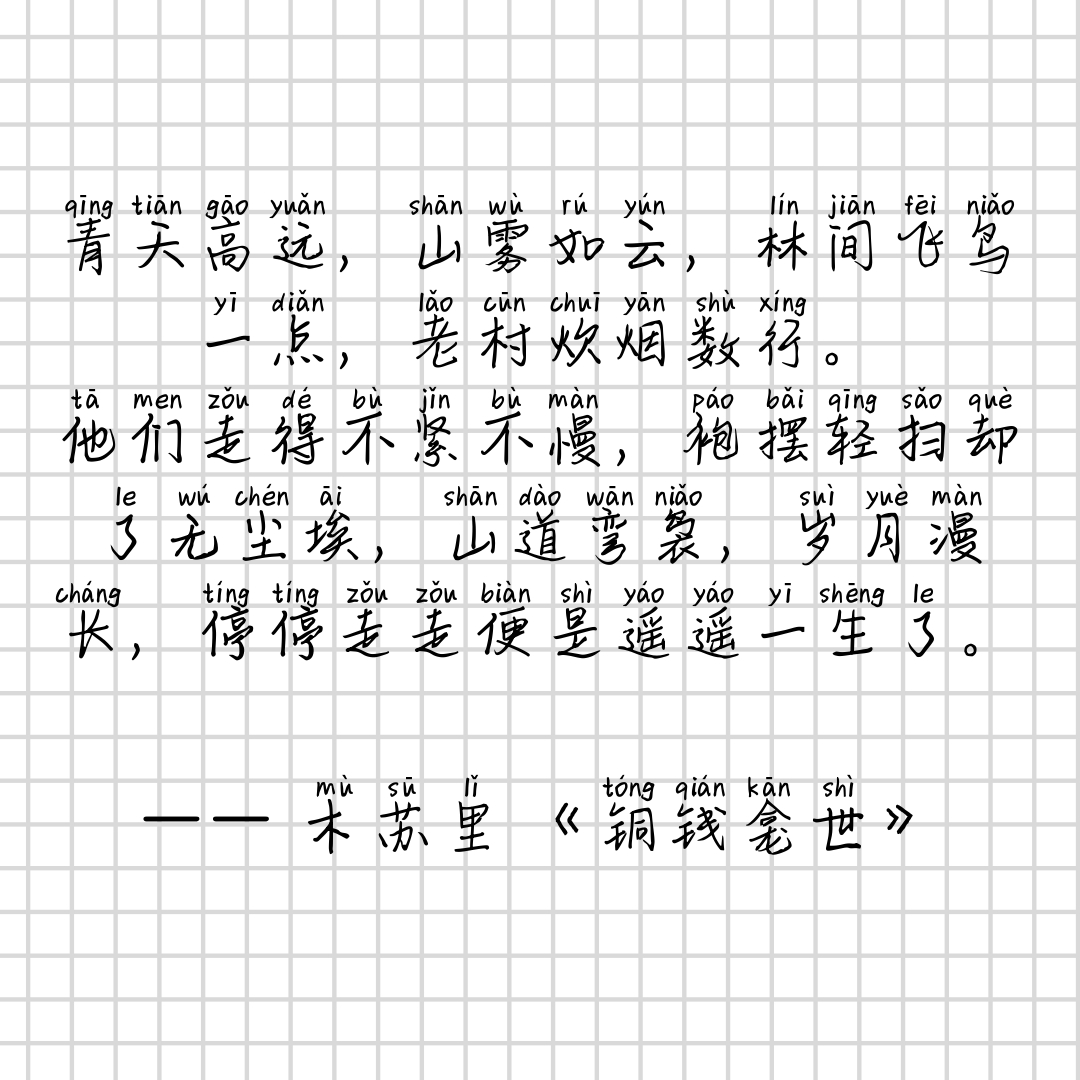 qīng tiān gāo yuǎn shān wù rú yún lín jiān fēi niǎo
青天高远，山雾如云，林间飞鸟
yī diǎn lǎo cūn chuī yān shù xíng
一点，老村炊烟数行。
tā men zǒu dé bù jǐn bù màn páo bǎi qīng sǎo què
他们走得不紧不慢，袍摆轻扫却
le wú chén āi shān dào wān niǎo suì yuè màn
了无尘埃，山道弯袅，岁月漫
cháng tíng tíng zǒu zǒu biàn shì yáo yáo yī shēng le
长，停停走走便是遥遥一生了。
mù sū lǐ tóng qián kān shì
——木苏里《铜钱龛世》